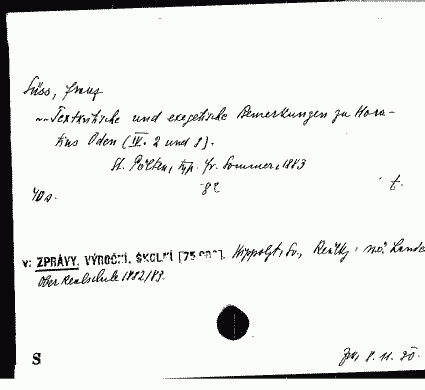 Süss, Franz
-- Textkritische und exegetische Bemerkungen zu Hora-
tius Oden (IV. 2 und 8).
St. Pölten, typ. Fr. Sommer, 1883
8º
t.
v: ZPRÁVY, VÝROČNÍ, ŠKOLNÍ Hippolyt, Sv., nö. Landes
Oberrealschule 1882/83.
S
8. 11.